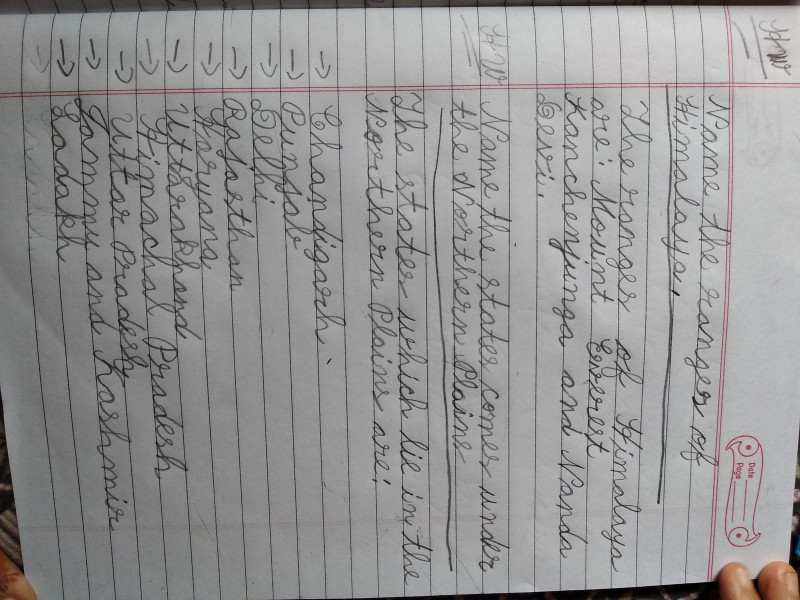 HW
Date
Page
Name the ranges of
Himalaya.
The ranges of Himalaya
are: Mount Everest
Kanchenjunga and Nanda
Devi.
HW Name the states comes under
the Northern Plains
The states which lie in the
Northern Plains are:
→ Chandigarh.
→ Punjab
→ Delhi
→ Rajasthan
→ Haryana
→ Uttrakhand
→ Himachal Pradesh
→ Uttar Pradesh
→ Jammu and Kashmir
→ Ladakh
→